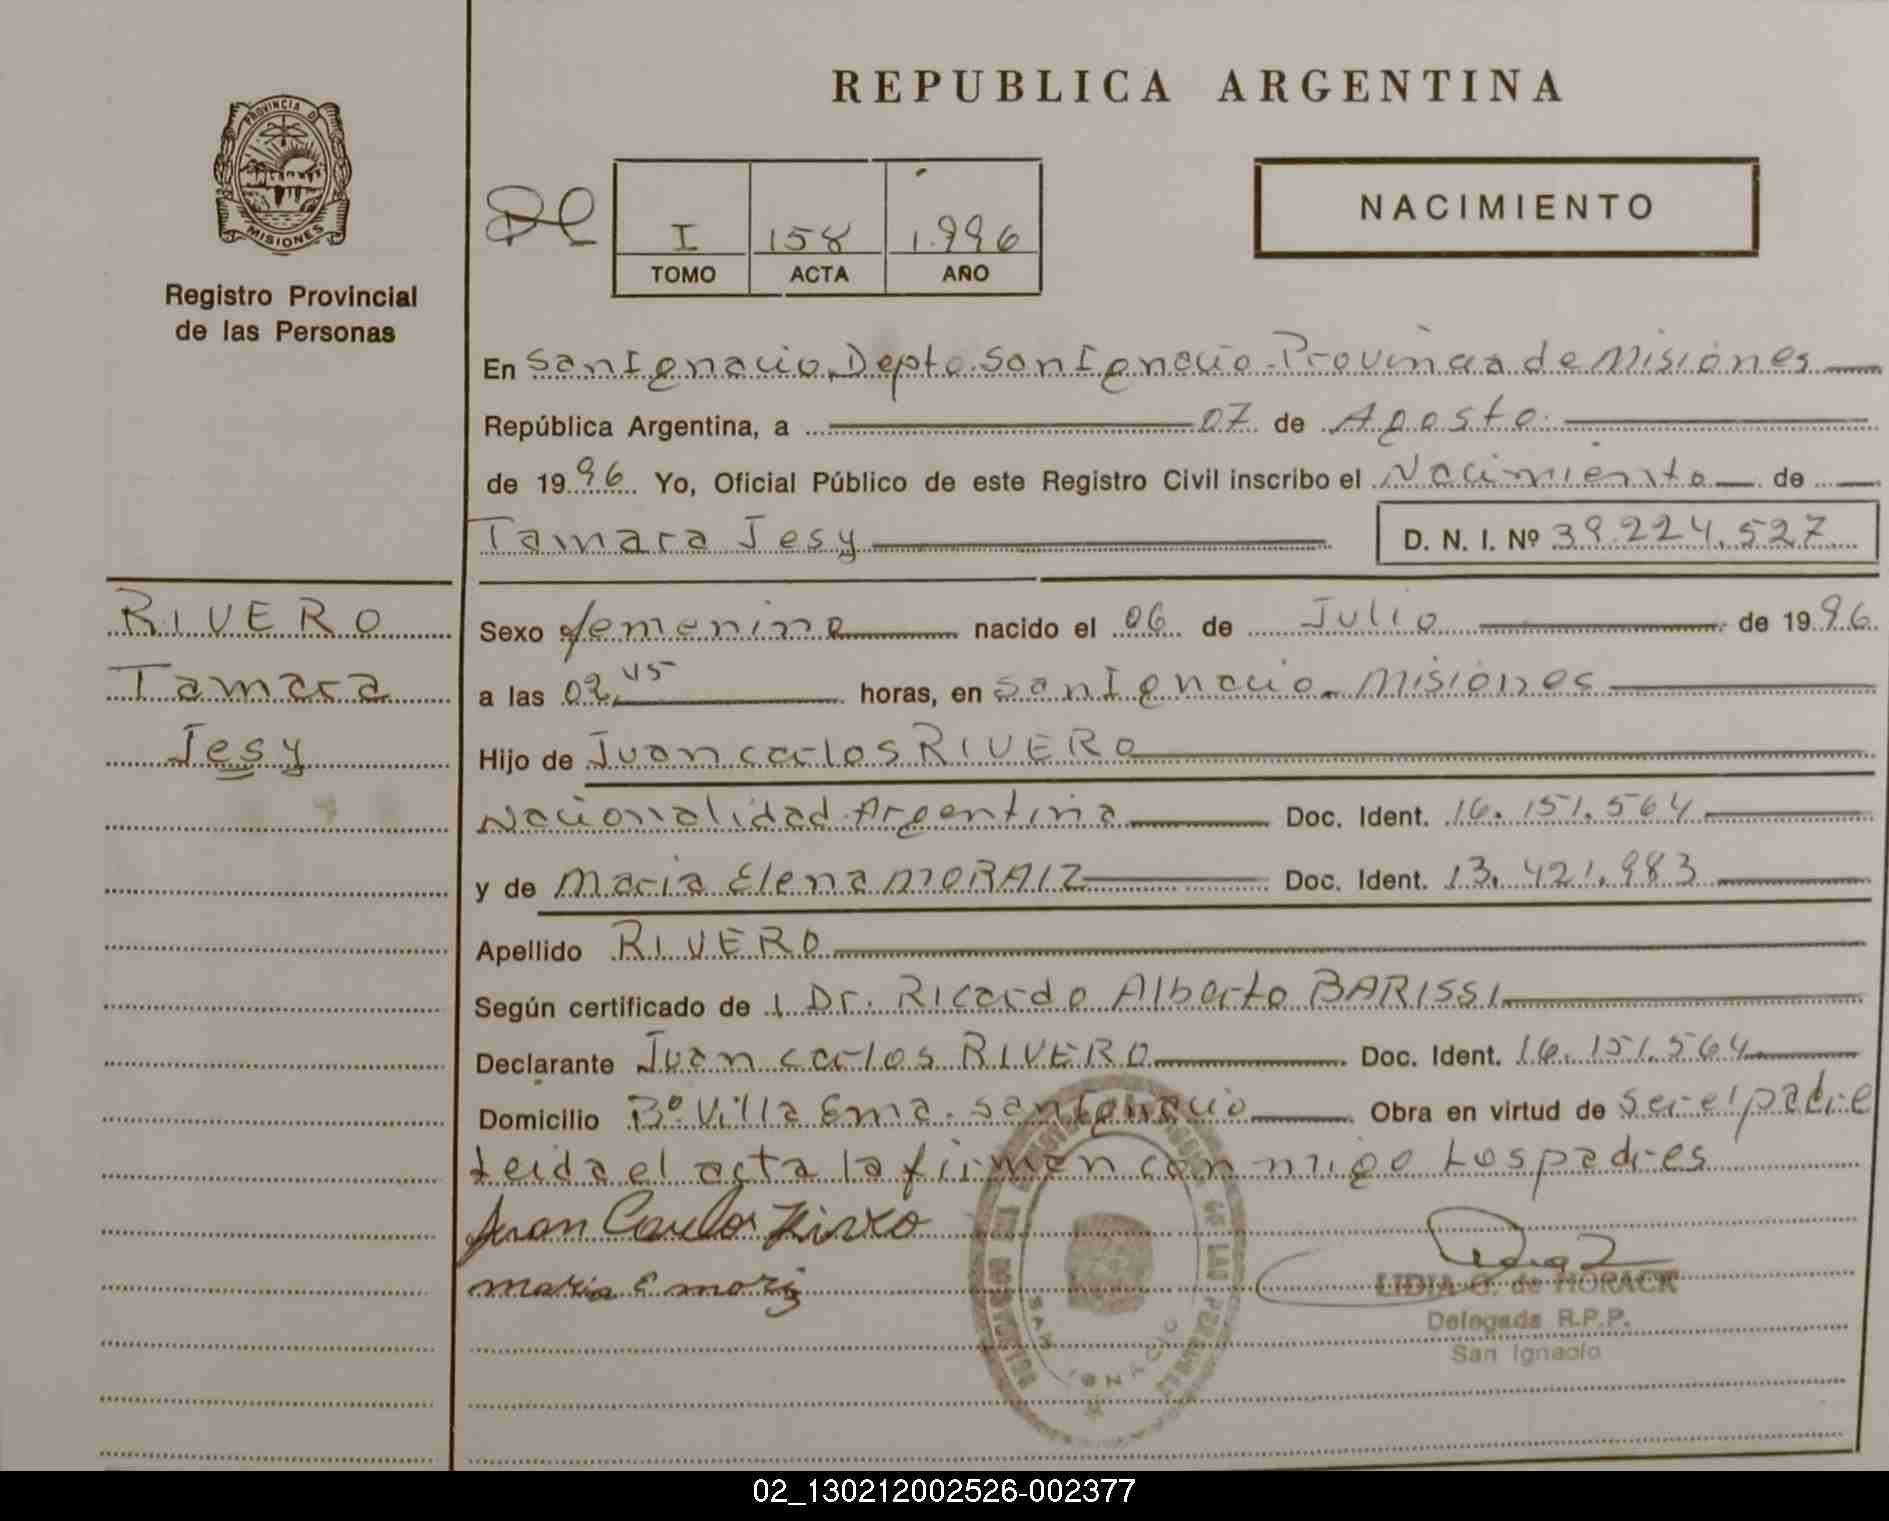 REPUBLICA ARGENTINA
PROVINCIA DE
MISIONES
Registro Provincial
de las Personas
I 158 1.996
TOMO ACTA AÑO
NACIMIENTO
En San Ignacio, Depto. San Ignacio - Provincia de Misiones
República Argentina, a 07 de Agosto
de 1996 Yo, Oficial Público de este Registro Civil inscribo el Nacimiento de
Tamara Jesy D. N. I. Nº 39.224.527
RIVERO
Tamara
Jesy
Sexo femenino nacido el 06 de Julio de 1996
a las 02,45 horas, en San Ignacio - Misiones
Hijo de Juan Carlos RIVERO
Nacionalidad Argentina Doc. Ident. 16.151.564
y de Maria Elena MORAIZ Doc. Ident. 13.421.983
Apellido RIVERO
Según certificado de Dr. Ricardo Alberto BARISSI
Declarante Juan Carlos RIVERO Doc. Ident. 16.151.564
Domicilio Bº Villa Ema. San Ignacio Obra en virtud de ser el padre
Leida el acta la firman conmigo Los padres
Juan Carlos Rivero
Maria E
LIDIA G. de HORACK
Delegada R.P.P.
San Ignacio
SAN IGNACIO
02_130212002526-002377